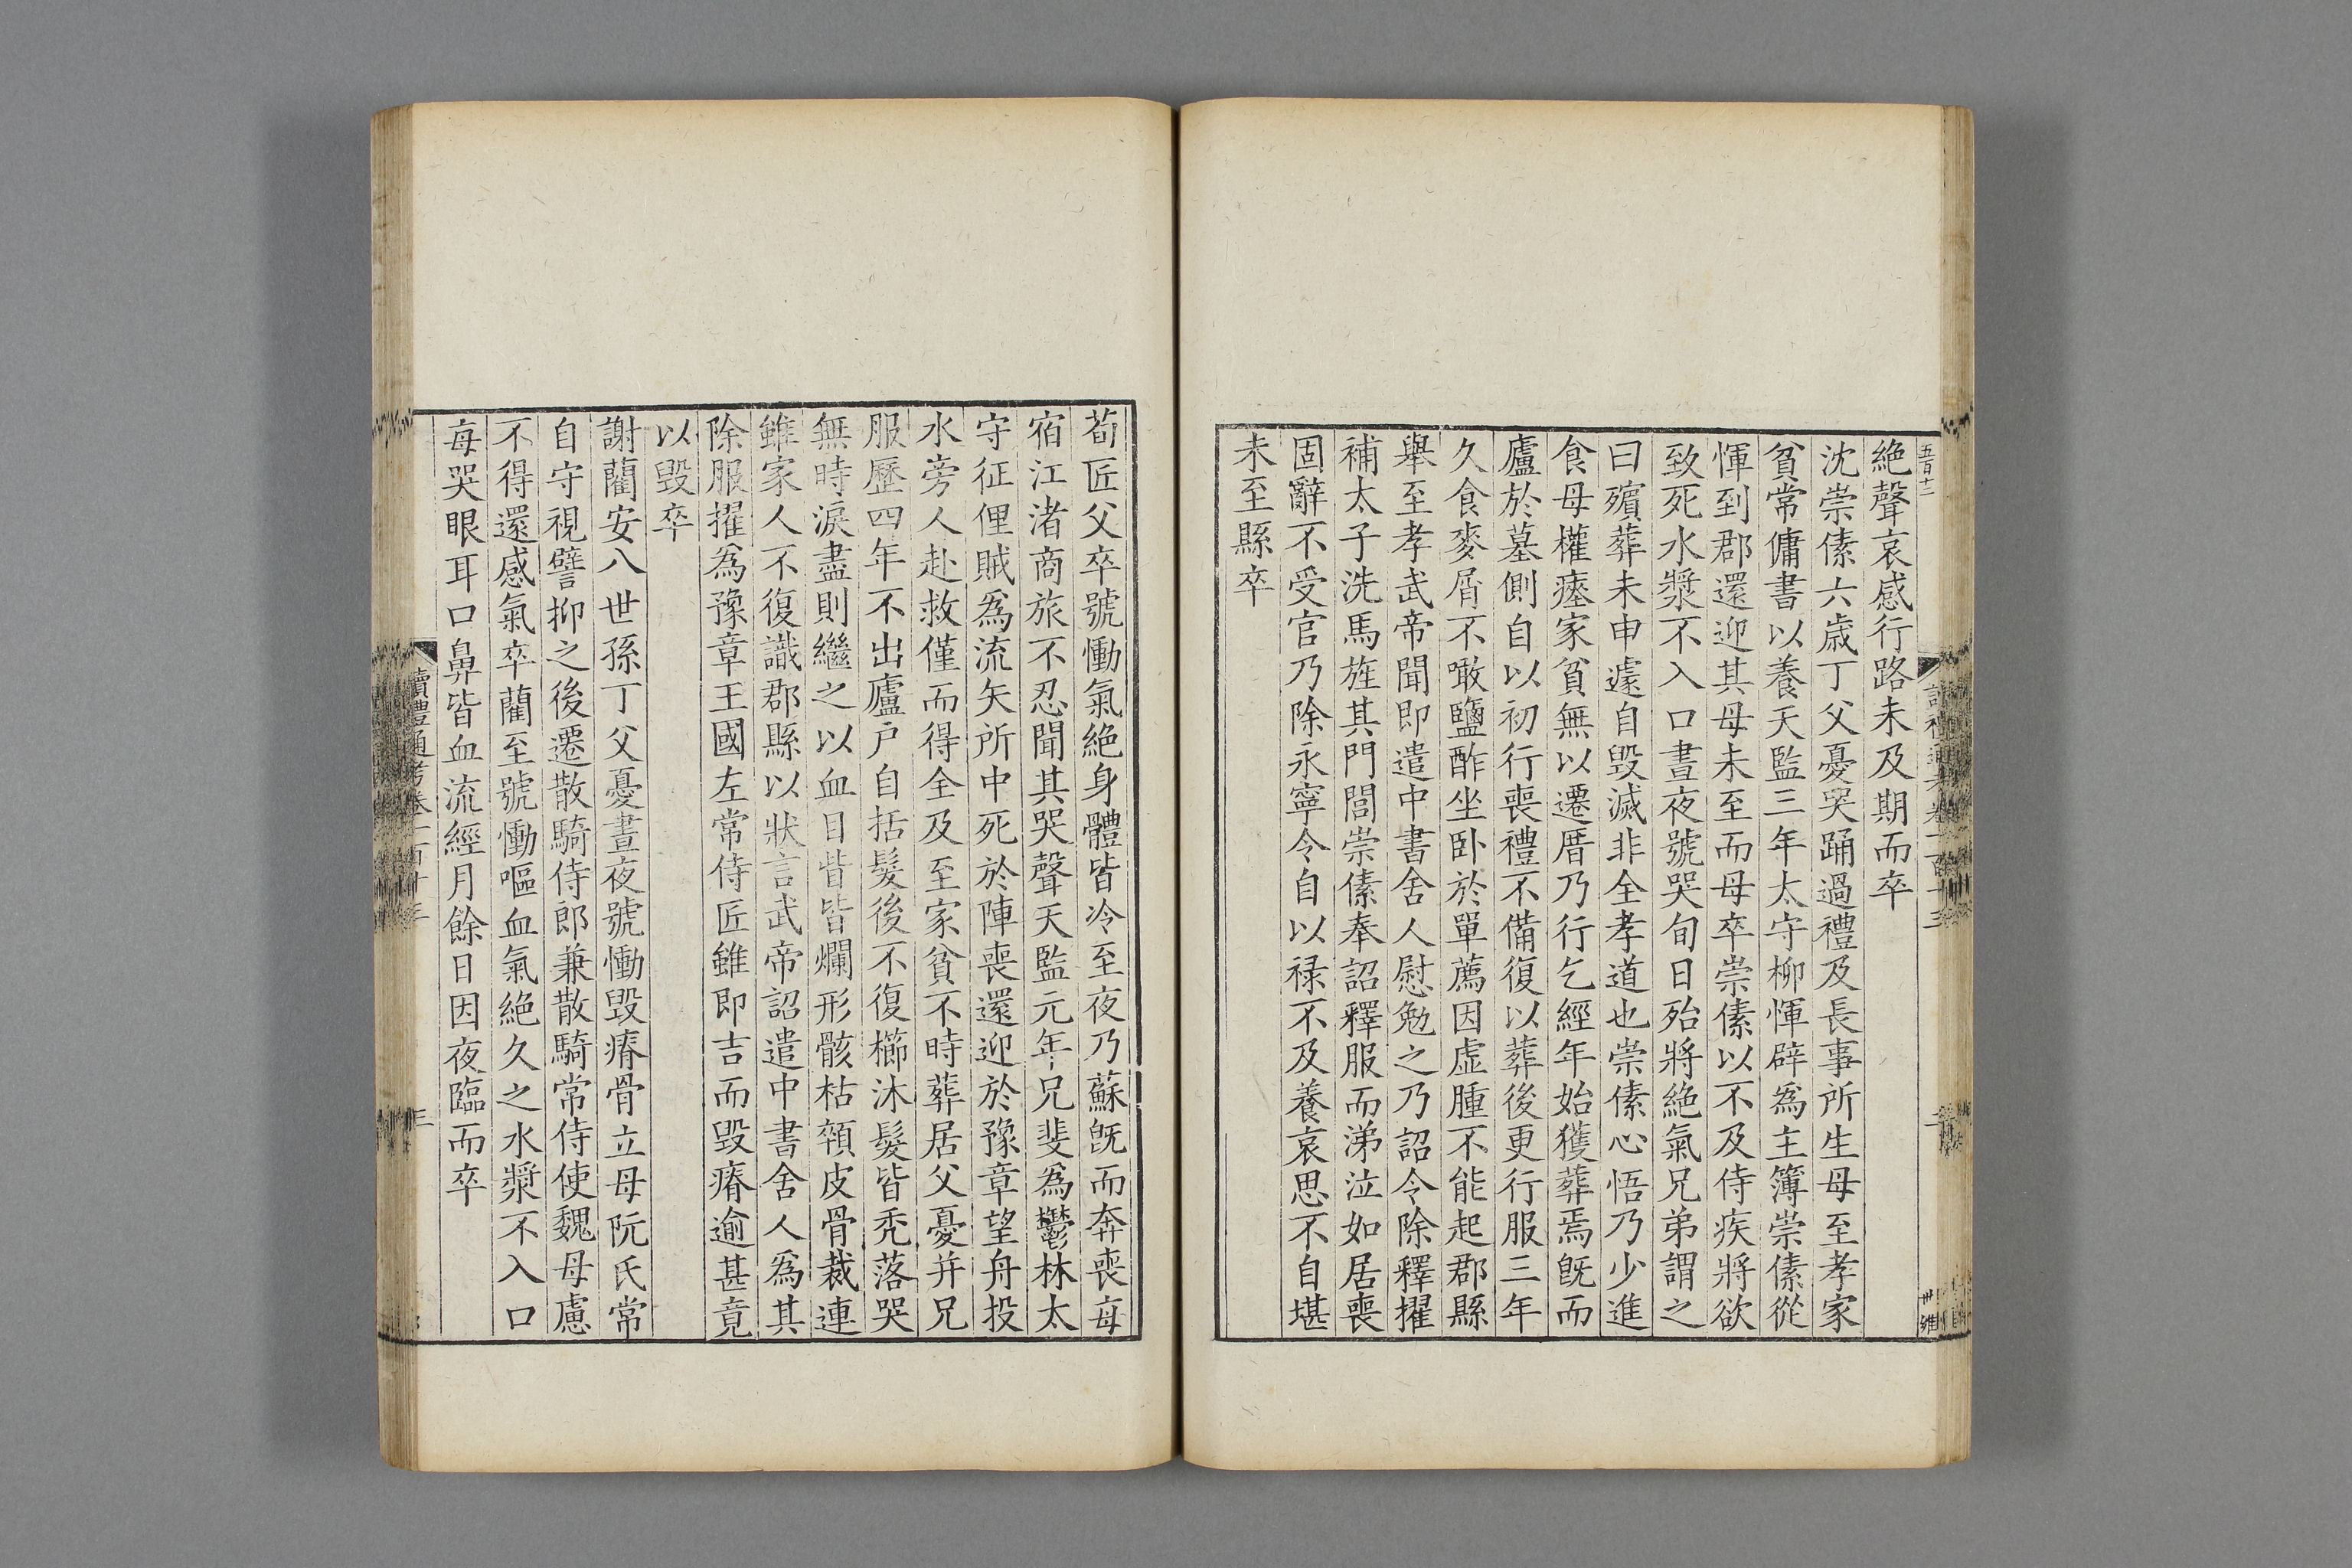 五百十二
絶聲哀感行路未及期而卒
沈崇傃六歲丁父憂哭踊過禮及長事所生母至孝家
貧常傭書以養天監三年太守柳惲辟爲主簿崇傃從
惲到郡還迎其母未至而母卒崇傃以不及侍疾將欲
致死水漿不入口晝夜號哭旬日殆將絶氣兄弟謂之
曰殯葬未申遽自毁滅非全孝道也崇傃心悟乃少進
食母權瘞家貧無以遷厝乃行乞經年始獲葬焉旣而
廬於墓側自以初行喪禮不備復以葬後更行服三年
久食麥屑不噉鹽酢坐卧於單薦因虚腫不能起郡縣
舉至孝武帝聞即遣中書舍人慰勉之乃詔令除釋擢
補太子洗馬旌其門閭崇傃奉詔釋服而涕泣如居喪
固辭不受官乃除永寧令自以禄不及養哀思不自堪
未至縣卒
荀匠父卒號慟氣絶身體皆冷至夜乃蘇旣而奔喪每
宿江渚商旅不忍聞其哭聲天監元年兄斐爲鬱林太
守征俚賊爲流矢所中死於陣喪還迎於豫章望舟投
水旁人赴救僅而得全及至家貧不時葬居父憂并兄
服歷四年不出廬戸自括髮後不復櫛沐髮皆禿落哭
無時淚盡則繼之以血目眥皆爛形骸枯顇皮骨裁連
雖家人不復識郡縣以狀言武帝詔遣中書舍人爲其
除服擢爲豫章王國左常侍匠雖即吉而毁瘠逾甚竟
以毁卒
謝藺安八世孫丁父憂晝夜號慟毁瘠骨立母阮氏常
自守視譬抑之後遷散騎侍郎兼散騎常侍使魏母慮
不得還感氣卒藺至號慟嘔血氣絶久之水漿不入口
每哭眼耳口鼻皆血流經月餘日因夜臨而卒
讀禮通考卷一百十三
三